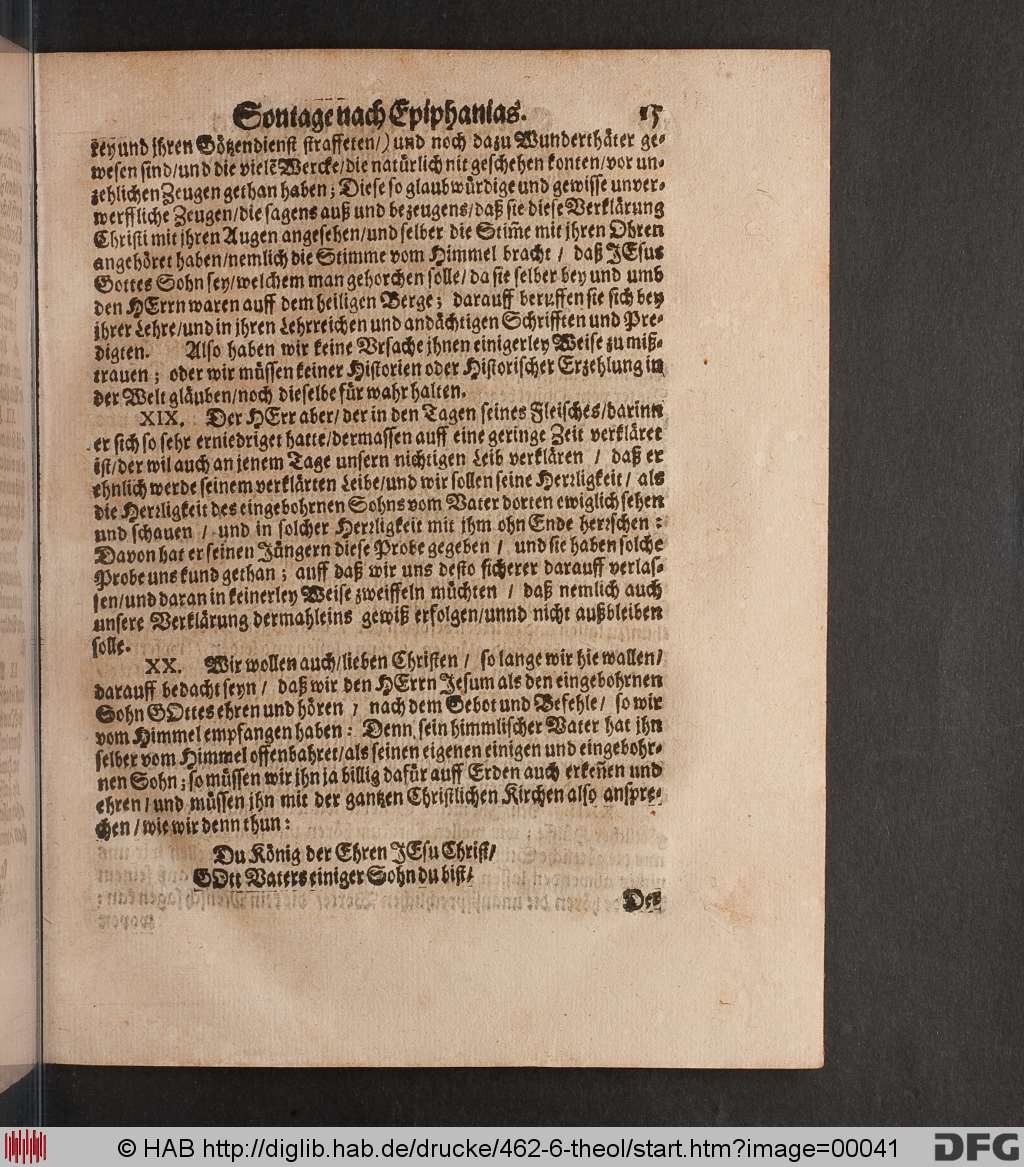 Sontage nach Epiphanias. 15
rey und jhren Götzendienst straffeten/) und noch dazu Wunderthäter ge-
wesen sind/und die vielẽ Wercke/die natürlich nit geschehen konten/vor un-
zehlichen Zeugen gethan haben; Diese so glaubwürdige und gewisse unver-
werffliche Zeugen/die sagens auß und bezeugens/daß sie diese Verklärung
Christi mit jhren Augen angesehen/und selber die Stim̃e mit jhren Ohren
angehöret haben/nemlich die Stimme vom Himmel bracht / daß JEsus
Gottes Sohn sey/welchem man gehorchen solle/da sie selber bey und umb
den HErrn waren auff dem heiligen Berge; darauff beruffen sie sich bey
jhrer Lehre/und in jhren Lehrreichen und andächtigen Schrifften und Pre-
digten. Also haben wir keine Vrsache jhnen einigerley Weise zu miß-
trauen; oder wir müssen keiner Historien oder Historischer Erzehlung in
der Welt gläuben/noch dieselbe für wahr halten.
XIX. Der HErr aber/der in den Tagen seines Fleisches/darinn
er sich so sehr erniedriget hatte/dermassen auff eine geringe Zeit verkläret
ist/der wil auch an jenem Tage unsern nichtigen Leib verklären / daß er
ehnlich werde seinem verklärten Leibe/und wir sollen seine Herrligkeit/ als
die Herrligkeit des eingebohrnen Sohns vom Vater dorten ewiglich sehen
und schauen / und in solcher Herrligkeit mit jhm ohn Ende herrschen:
Davon hat er seinen Jüngern diese Probe gegeben / und sie haben solche
Probe uns kund gethan; auff daß wir uns desto sicherer darauff verlas-
sen/und daran in keinerley Weise zweiffeln müchten / daß nemlich auch
unsere Verklärung dermahleins gewiß erfolgen/unnd nicht außbleiben
solle.
XX. Wir wollen auch/lieben Christen / so lange wir hie wallen/
darauff bedacht seyn / daß wir den HErrn Jesum als den eingebohrnen
Sohn GOttes ehren und hören / nach dem Gebot und Befehle/ so wir
vom Himmel empfangen haben: Denn sein himmlischer Vater hat jhn
selber vom Himmel offenbahret/als seinen eigenen einigen und eingebohr-
nen Sohn; so müssen wir jhn ja billig dafür auff Erden auch erkeñen und
ehren/und müssen jhn mit der gantzen Christlichen Kirchen also anspre-
chen/wie wir denn thun:
Du König der Ehren JEsu Christ/
GOtt Vaters einiger Sohn du bist/
Der
© HAB http://diglib.hab.de/drucke/462-6-theol/start.htm?image=00041
DFG